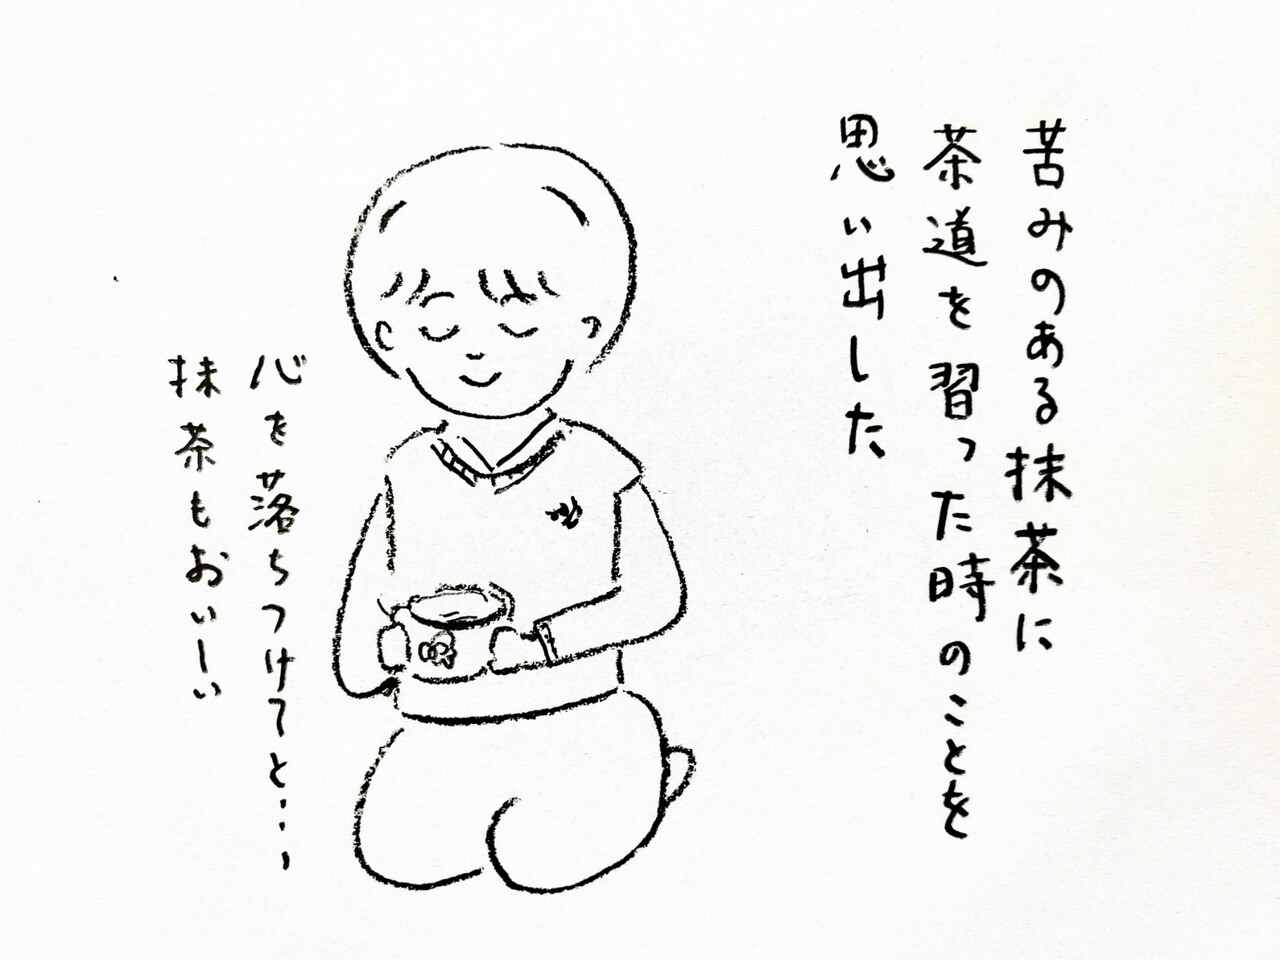 苦みのある抹茶に
茶道を習った時のことを
思い出した
心を落ちつけてと…、
抹茶もおいしい